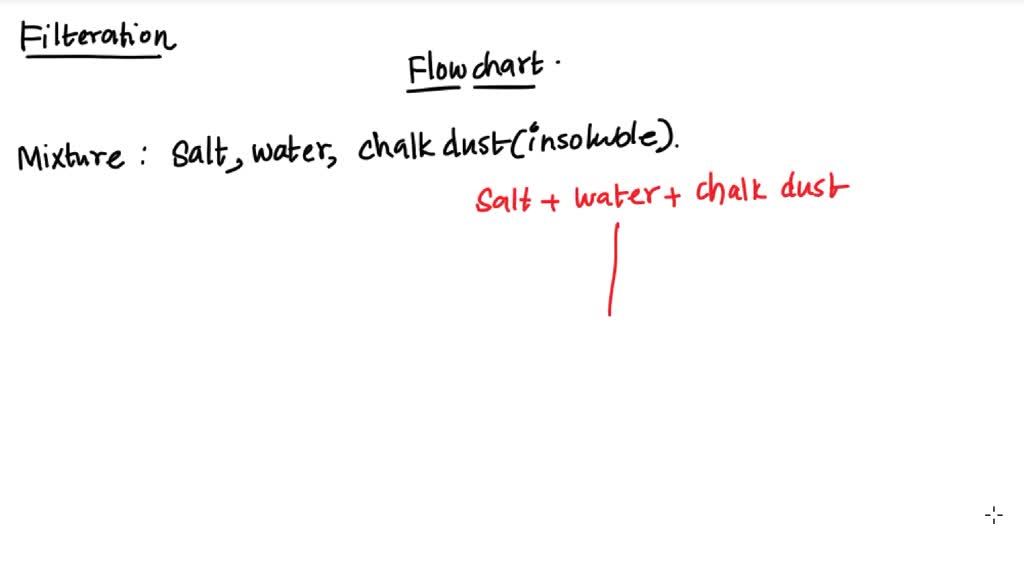 Filteration
Flow chart.
Mixture : Salt, water, chalk dust (insoluble).
Salt + water + chalk dust